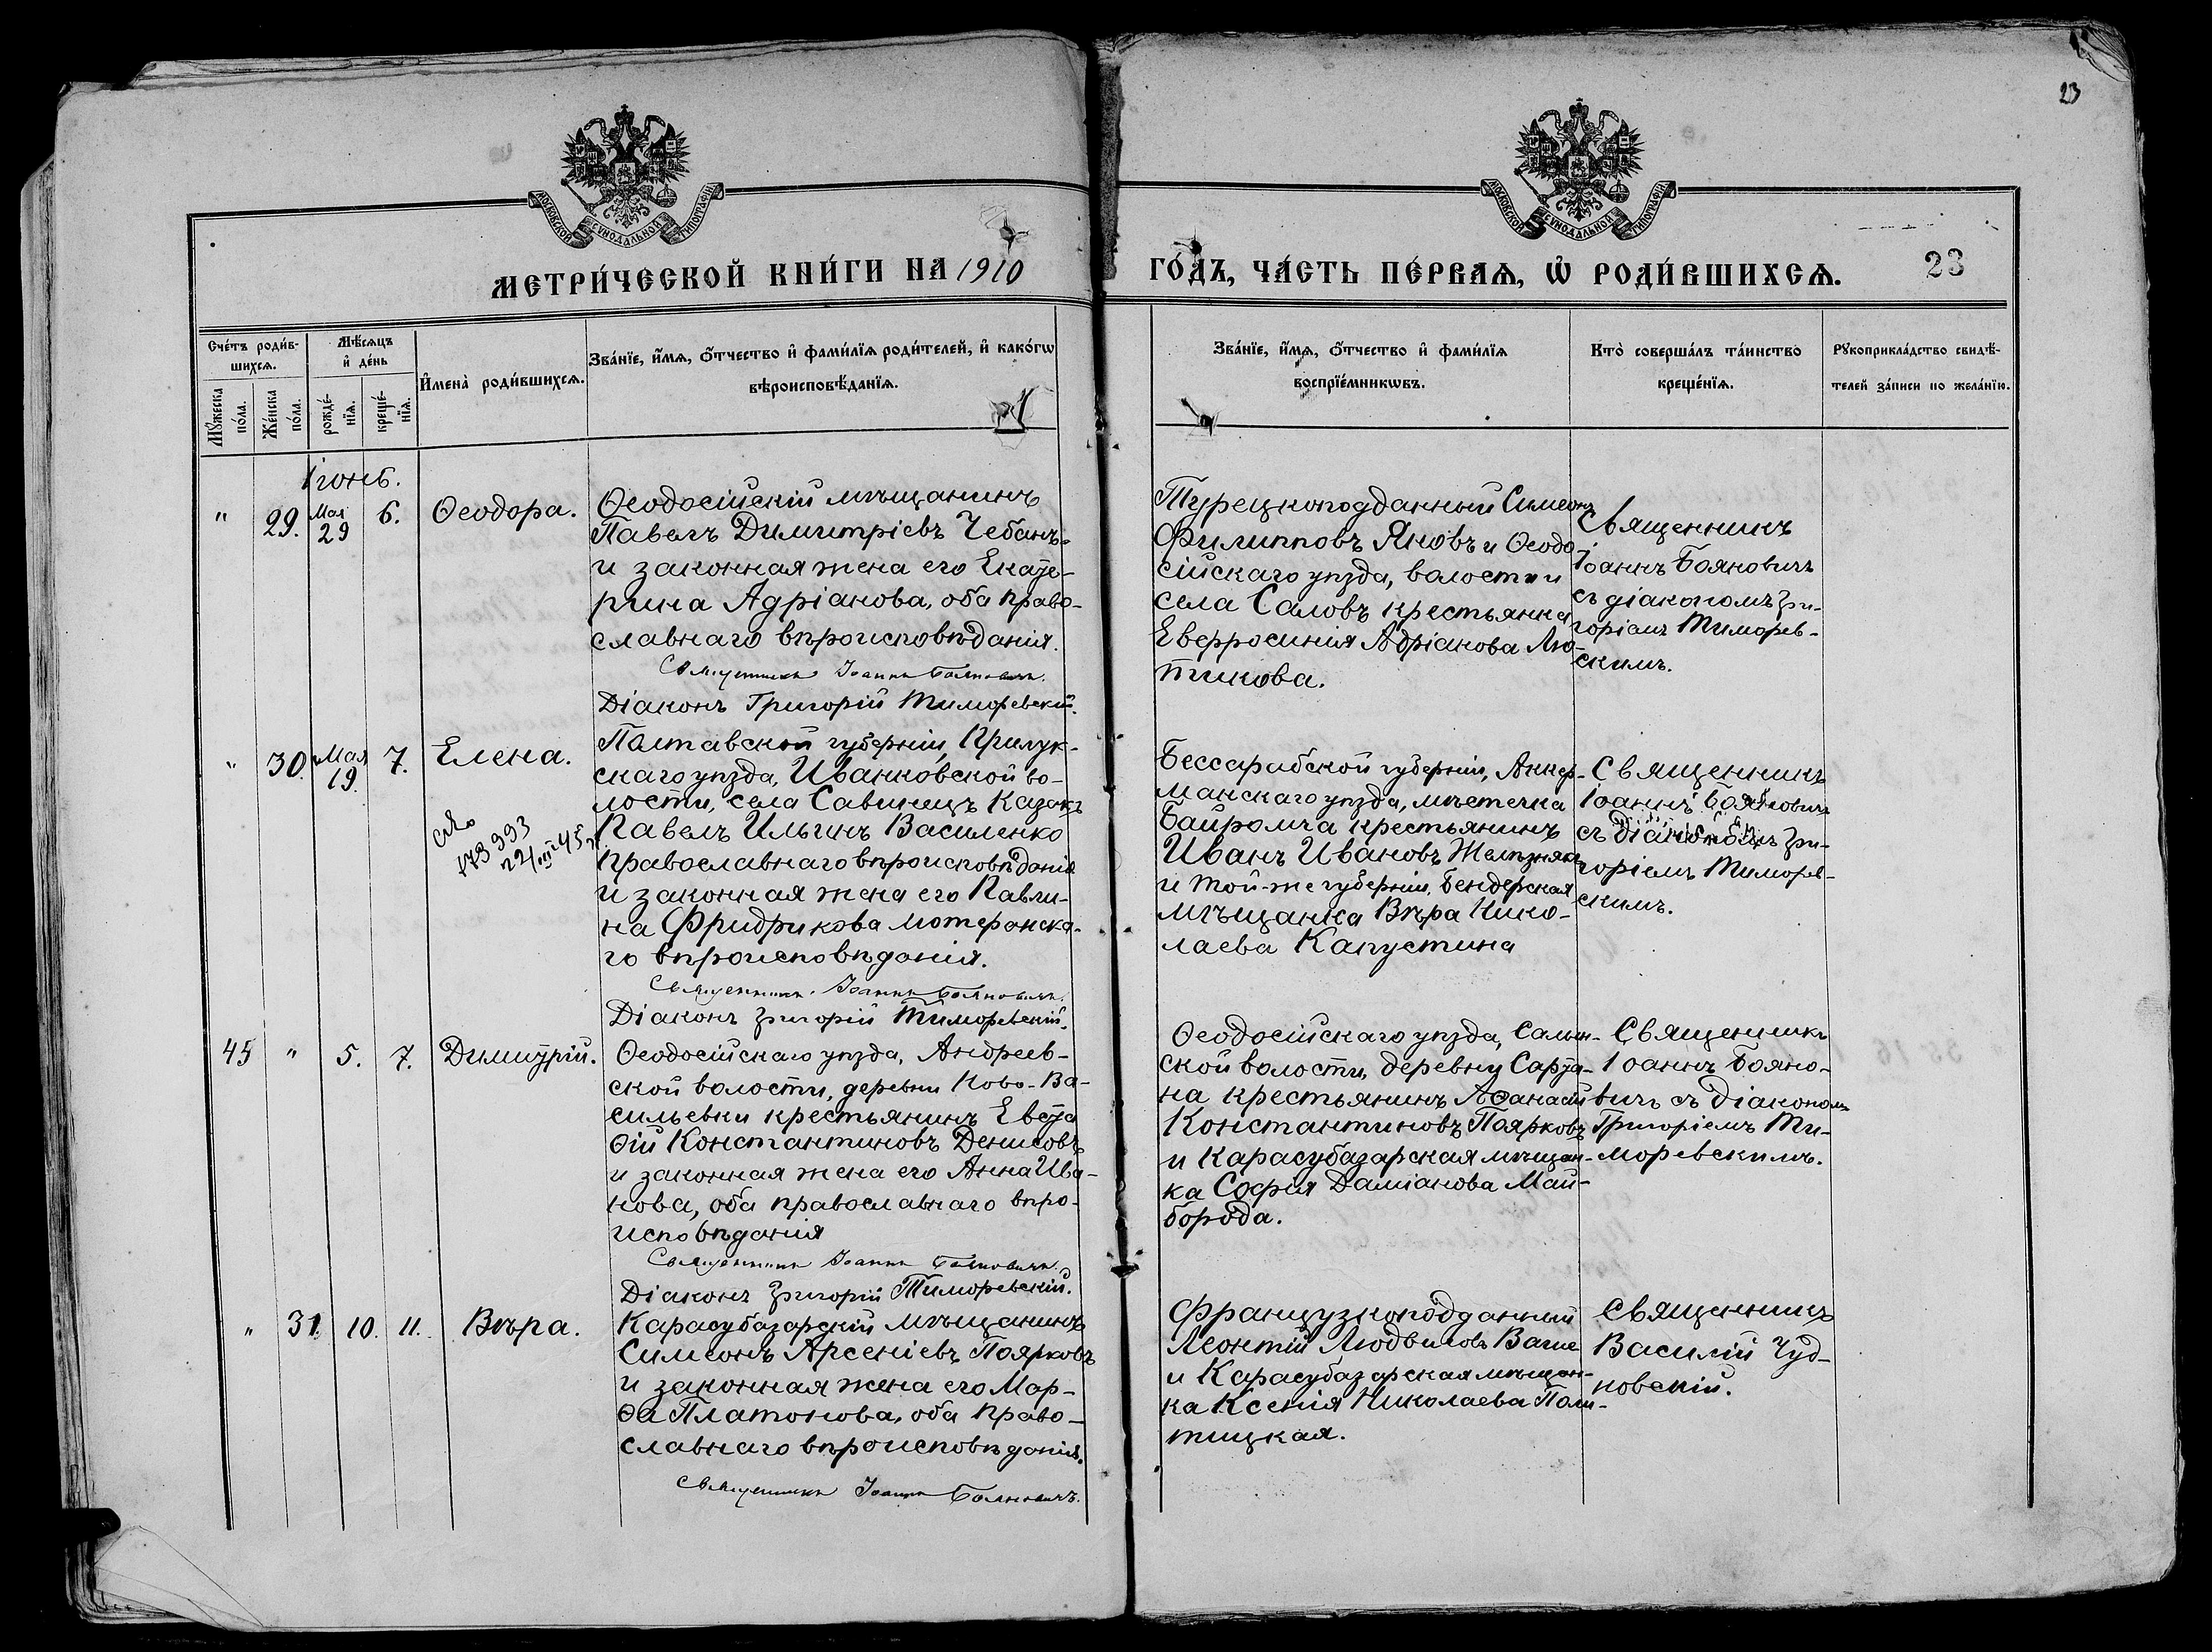 23
МОСКОВСКОЙ СУНОДАЛЬНОЙ ТИПОГРАФІИ
МОСКОВСКОЙ СУНОДАЛЬНОЙ ТИПОГРАФІИ
МЕТРИ́ЧЕСКОЙ КНИ́ГИ НА 1910
ГО́ДЪ, ЧА́СТЬ ПЕ́РВАѦ, Ѡ҆ РОДИ́ВШИХСѦ.
23
Сче́тъ роди́в-
шихсѧ.
Мꙋ́жеска
по́ла.
Же́нска
по́ла.
Мѣ́сѧцъ
и҆ де́нь
рожде́-
нїѧ.
креще́-
нїѧ.
И҆мена̀ роди́вшихсѧ.
Зва́нїе, и҆́мѧ, ѻ҆́тчество и҆ фами́лїѧ роди́телей, и҆ како́гѡ
вѣроисповѣ́данїѧ.
Зва́нїе, и҆́мѧ, ѻ҆́тчество и҆ фами́лїѧ
воспрїе́мникѡвъ.
Кто̀ соверша́лъ та́инство
креще́нїѧ.
Рꙋкоприкла́дство свидѣ́-
телей за́писи по жела́нїю.
Іюнь.
" 29. Мая 29 6. Ѳеодора.
Ѳеодосійскій мѣщанинъ
Павелъ Димитріевъ Чебанъ
и законная жена его Екате-
рина Адріанова, оба право-
славнаго вѣроисповѣданія.
Священникъ Іоаннъ Бояновичъ.
Діаконъ Григорій Тиморевскій.
Турецкоподданный Симеонъ
Филипповъ Яновъ и Ѳеодо-
сійскаго уѣзда, волости и
села Саловъ крестьянка
Евфросинія Адріанова Лю-
тикова.
Священникъ
Іоаннъ Бояновичъ
съ діакономъ Гри-
горіемъ Тиморев-
скимъ.
" 30. Мая 19. 7. Елена.
173993
22/III 45 г.
Полтавской губерніи, Прилук-
скаго уѣзда, Иванковской во-
лости, села Савинецъ казакъ
Павелъ Ильинъ Василенко
православнаго вѣроисповѣданія
и законная жена его Павли-
на Фридрикова лютеранска-
го вѣроисповѣданія.
Священникъ Іоаннъ Бояновичъ.
Діаконъ Григорій Тиморевскій.
Бессарабской губерніи, Аккер-
манскаго уѣзда, мѣстечка
Байромча крестьянинъ
Иванъ Ивановъ Желѣзнякъ
и той-же губерніи, Бендерская
мѣщанка Вѣра Нико-
лаева Капустина
Священникъ
Іоаннъ Бояновичъ
съ діакономъ Гри-
горіемъ Тиморев-
скимъ.
45 " 5. 7. Димитрій.
Ѳеодосійскаго уѣзда, Андреев-
ской волости, деревни Ново-Ва-
сильевки крестьянинъ Евста-
ѳій Константиновъ Денисовъ
и законная жена его Анна Ива-
нова, оба православнаго вѣро-
исповѣданія
Священникъ Іоаннъ Бояновичъ.
Діаконъ Григорій Тиморевскій.
Ѳеодосійскаго уѣзда, Салын-
ской волости, деревни Сарта-
на крестьянинъ Аѳанасій
Константиновъ Поярковъ
и Карасубазарская мѣщан-
ка Софія Даміанова Май-
борода.
Священникъ
Іоаннъ Бояно-
вичъ съ діакономъ
Григоріемъ Ти-
моревскимъ.
" 31. 10. 11. Вѣра.
Карасубазарскій мѣщанинъ
Симеонъ Арсеніевъ Поярковъ
и законная жена его Мар-
ѳа Платонова, оба право-
славнаго вѣроисповѣданія.
Священникъ Іоаннъ Бояновичъ.
Французкоподданный
Леонтій Людвиговъ Ваше
и Карасубазарская мѣщан-
ка Ксенія Николаева Поли-
тицкая.
Священникъ
Василій Чуд-
новскій.